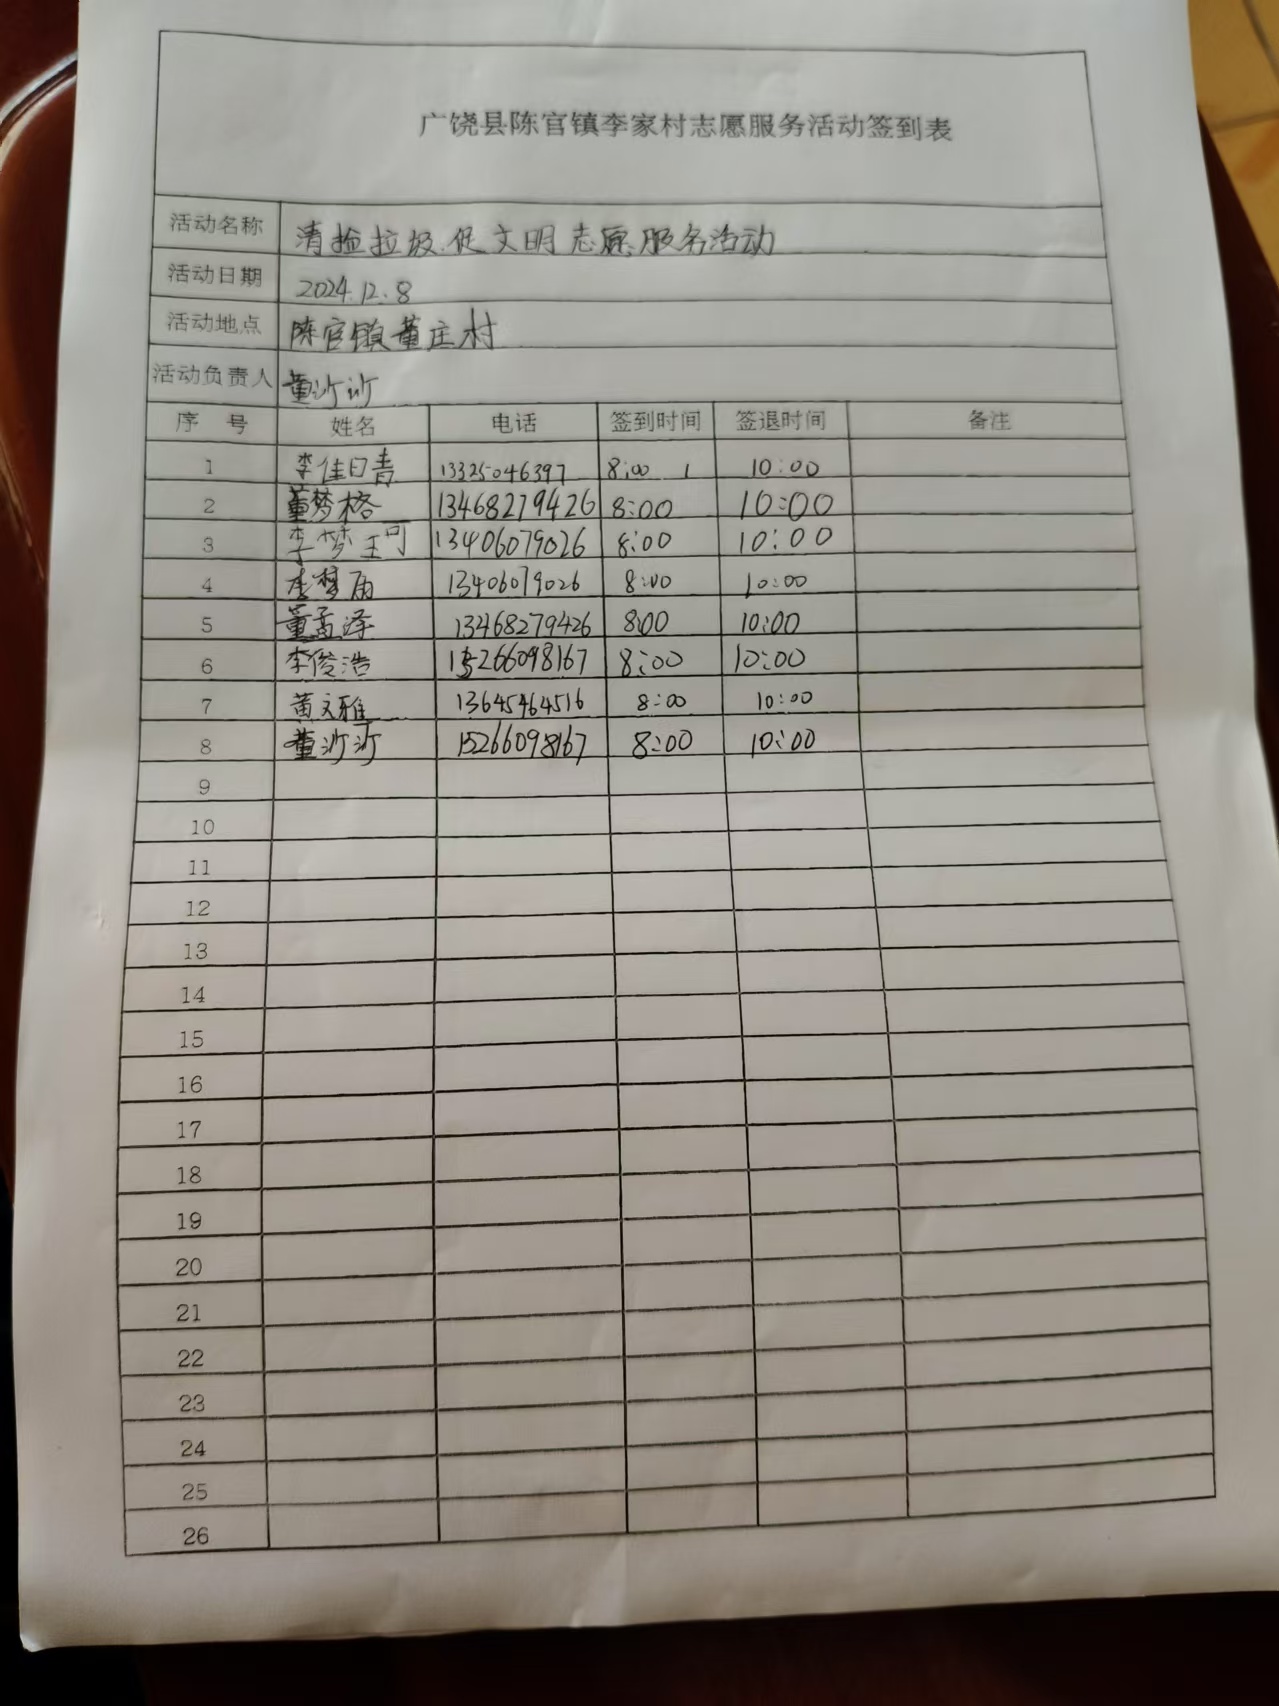 广饶县陈官镇李家村志愿服务活动签到表
活动名称 清捡垃圾.促文明志愿服务活动
活动日期 2024.12.8
活动地点 陈官镇董庄村
活动负责人 董沙沙
序 号 姓名 电话 签到时间 签退时间 备注
1 李佳晴 13325046397 8:00 10:00
2 董梦格 13468279426 8:00 10:00
3 李梦珂 13406079026 8:00 10:00
4 李梦雨 13406079026 8:00 10:00
5 董孟泽 13468279426 8:00 10:00
6 李俊浩 15266098167 8:00 10:00
7 黄文雅 13645464516 8:00 10:00
8 董沙沙 15266098167 8:00 10:00
9
10
11
12
13
14
15
16
17
18
19
20
21
22
23
24
25
26